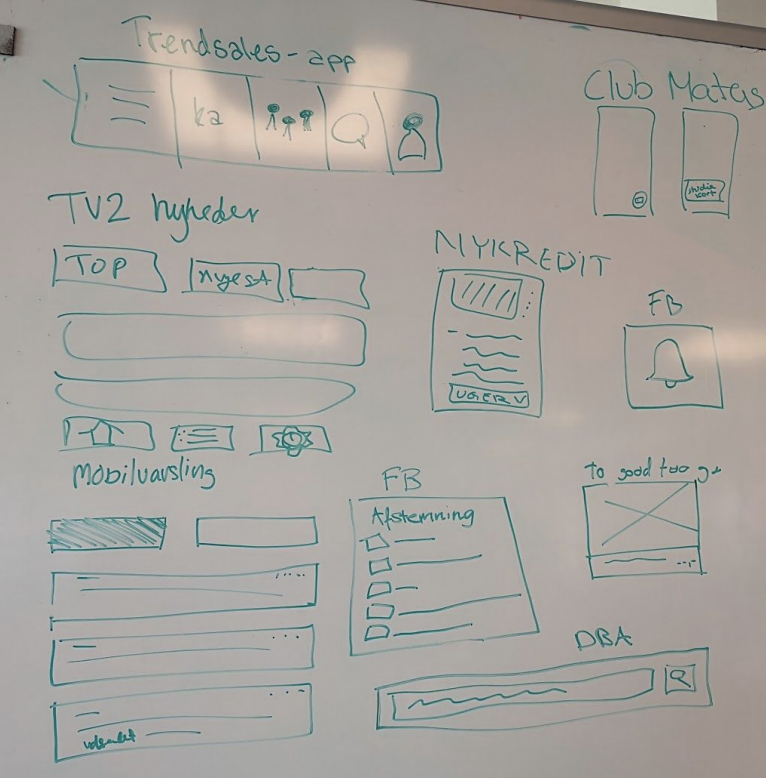 Trendsales-app
ka
Club Matas
studie
kort
TV2 nyheder
TOP
nyest
NYKREDIT
FB
Mobilvarsling
FB
Afstemning
To good too go
DBA